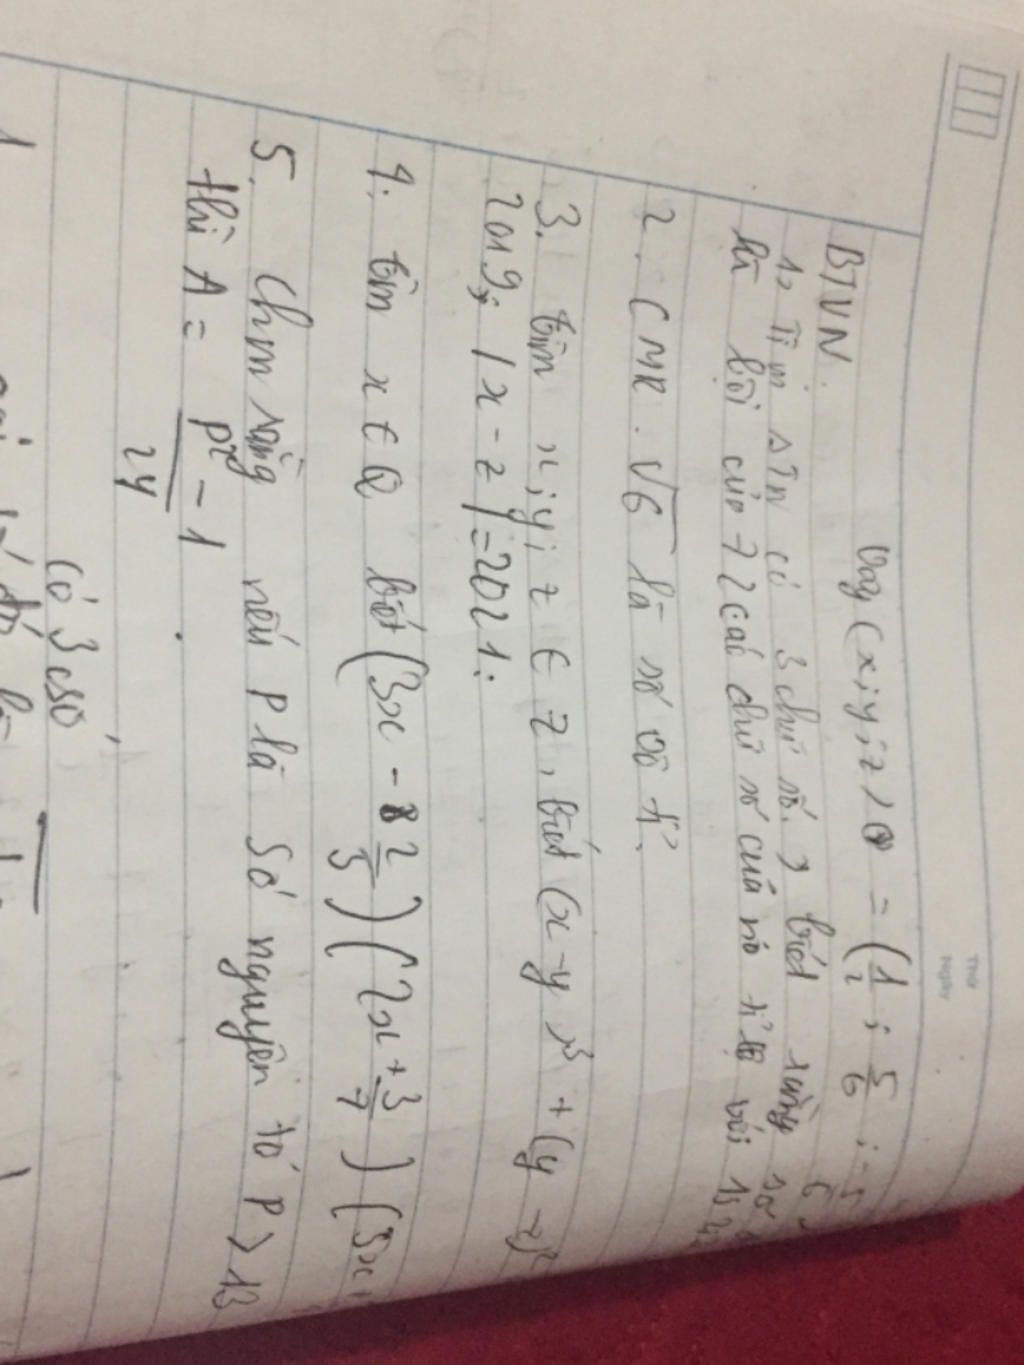 Thứ
Ngày
Vậy (x; y; z) = (1/2; 5/6; -5/6
BTVN.
1, Tìm STN có 3 chữ số, biết rằng số
là bội của 72 các chữ số của nó tỉ lệ với 1; 2;
2. CMR. √6 là số vô tỉ.
3. tìm x; y; z ∈ Z, biết (x-y)³ + (y-z)²
2019; |x-z| = 2021.
4. tìm x ∈ Q biết (3x - 2/5)(2x + 3/7)(3x+
5. Chm rằng nếu P là số nguyên tố P > 13
thì A = p² - 1 / 24
Có 3 cso